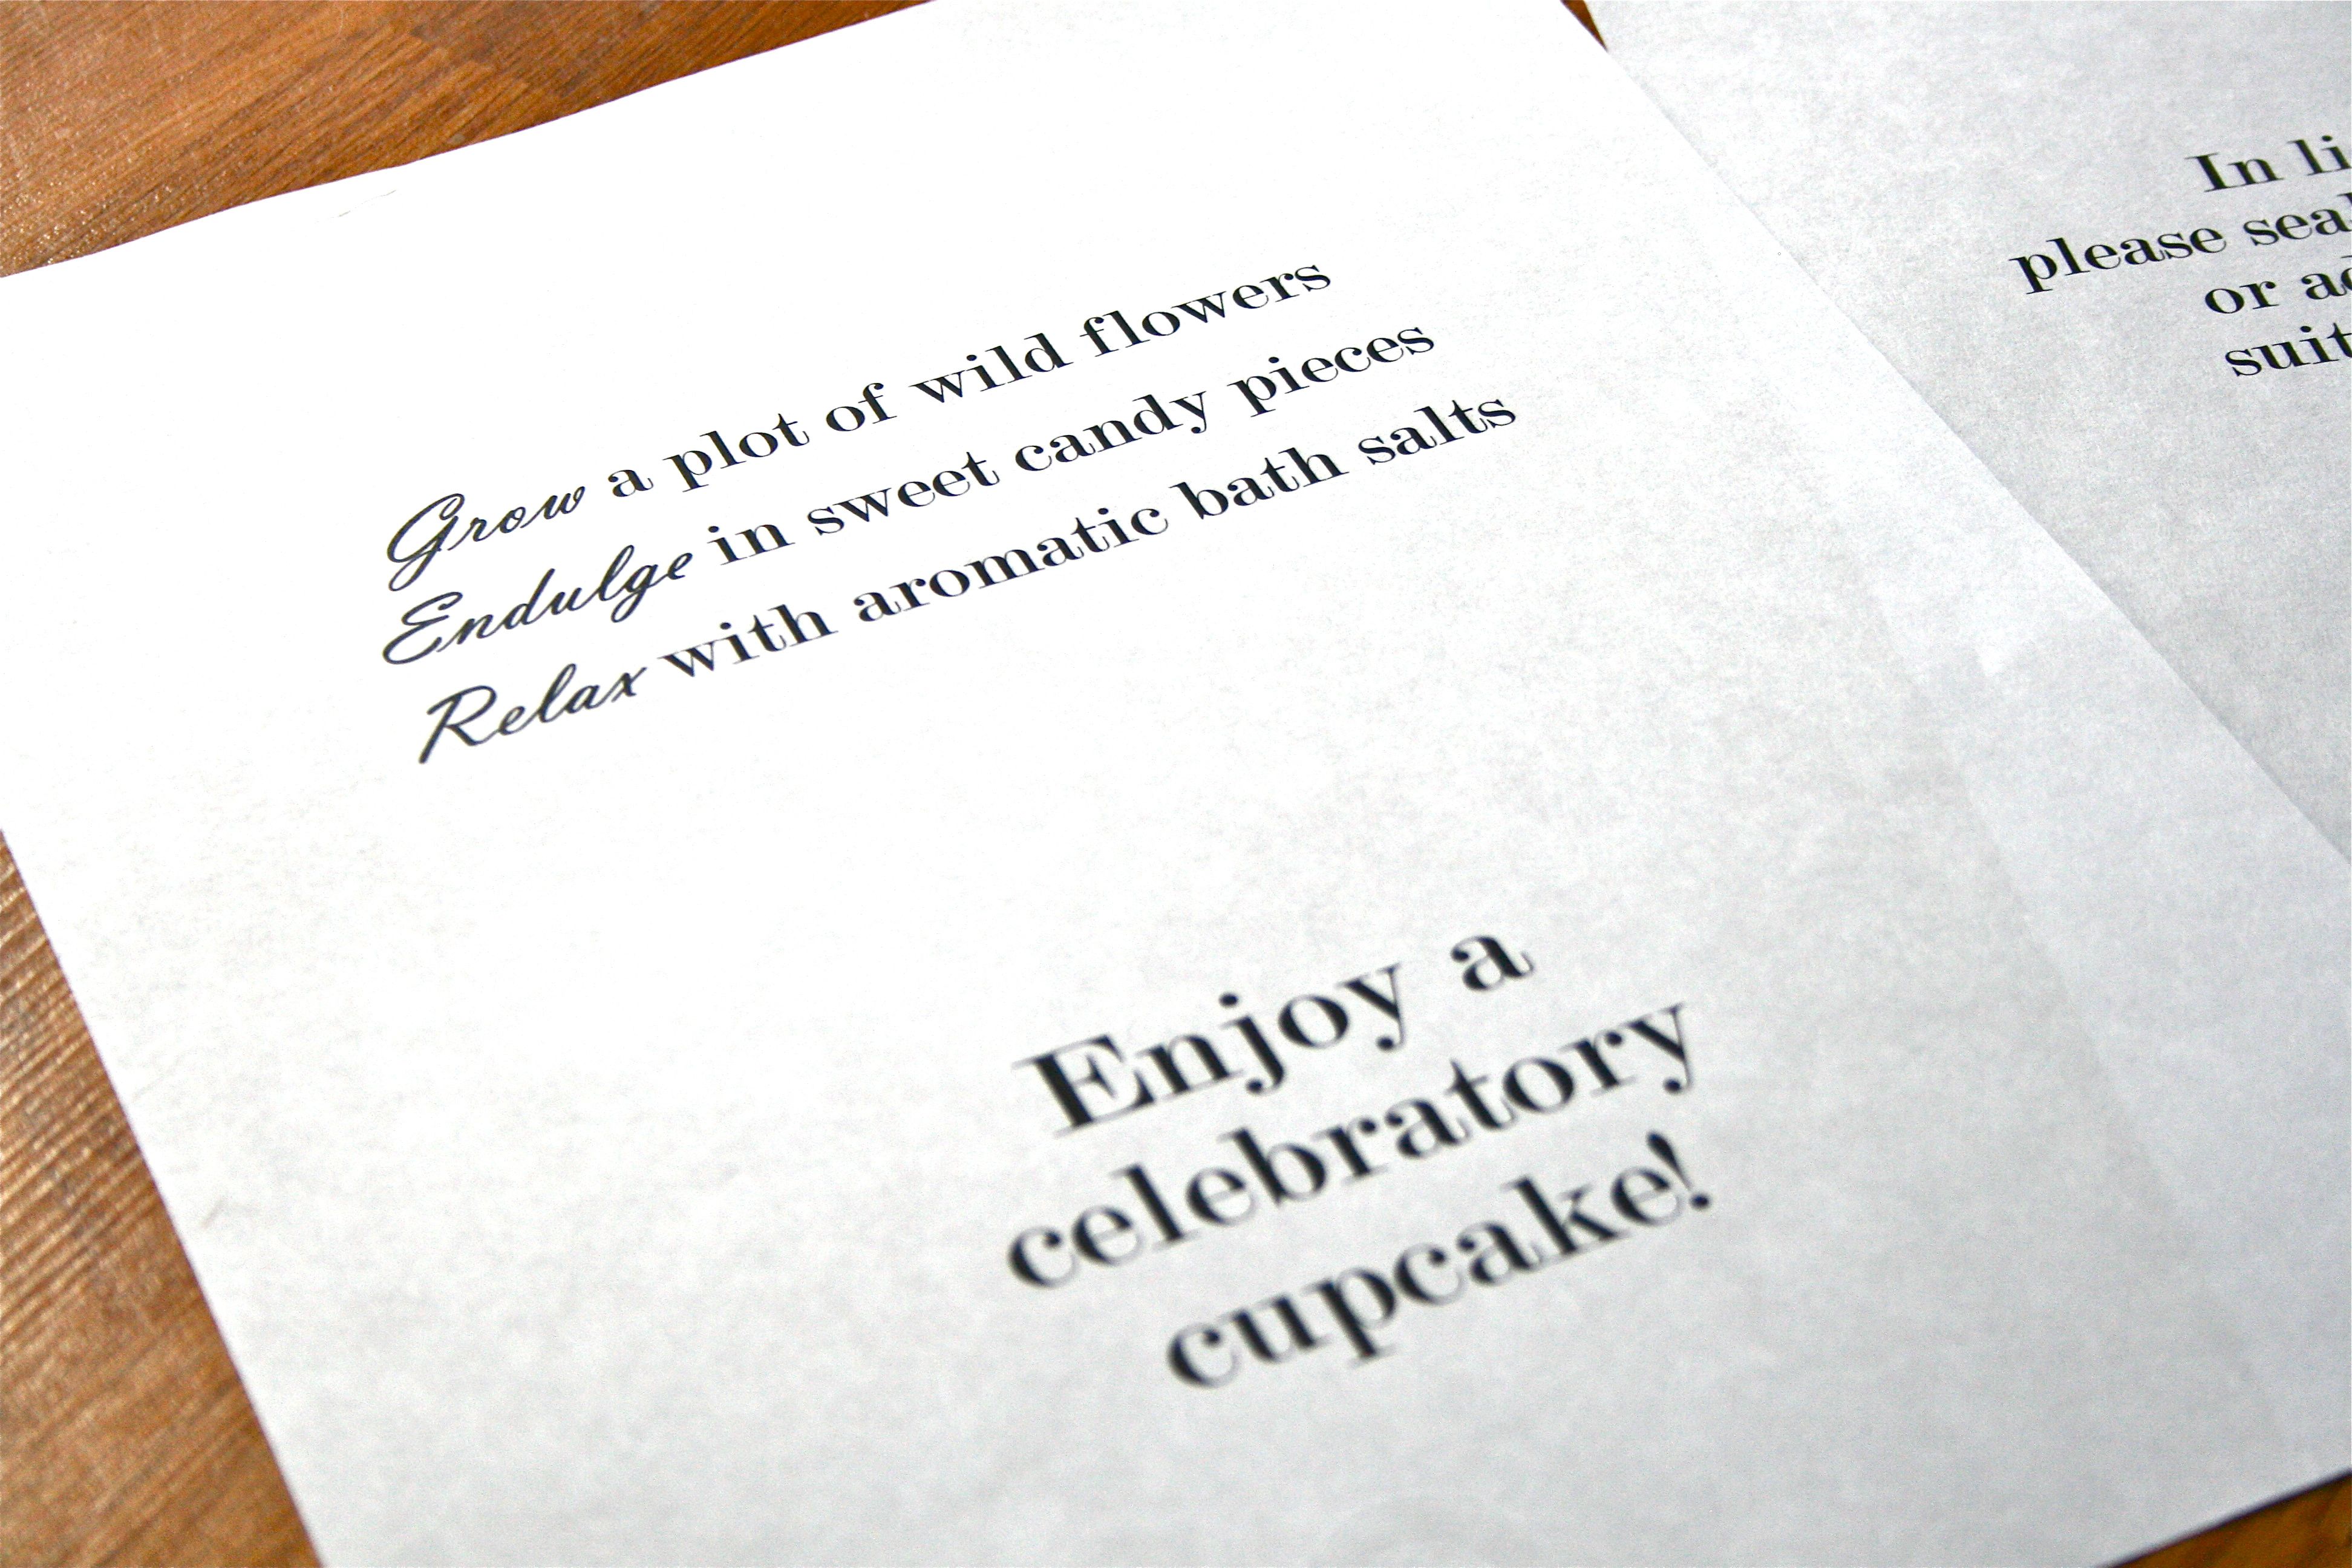 Grow a plot of wild flowers
Endulge in sweet candy pieces
Relax with aromatic bath salts
Enjoy a
celebratory
cupcake!
In
please
or